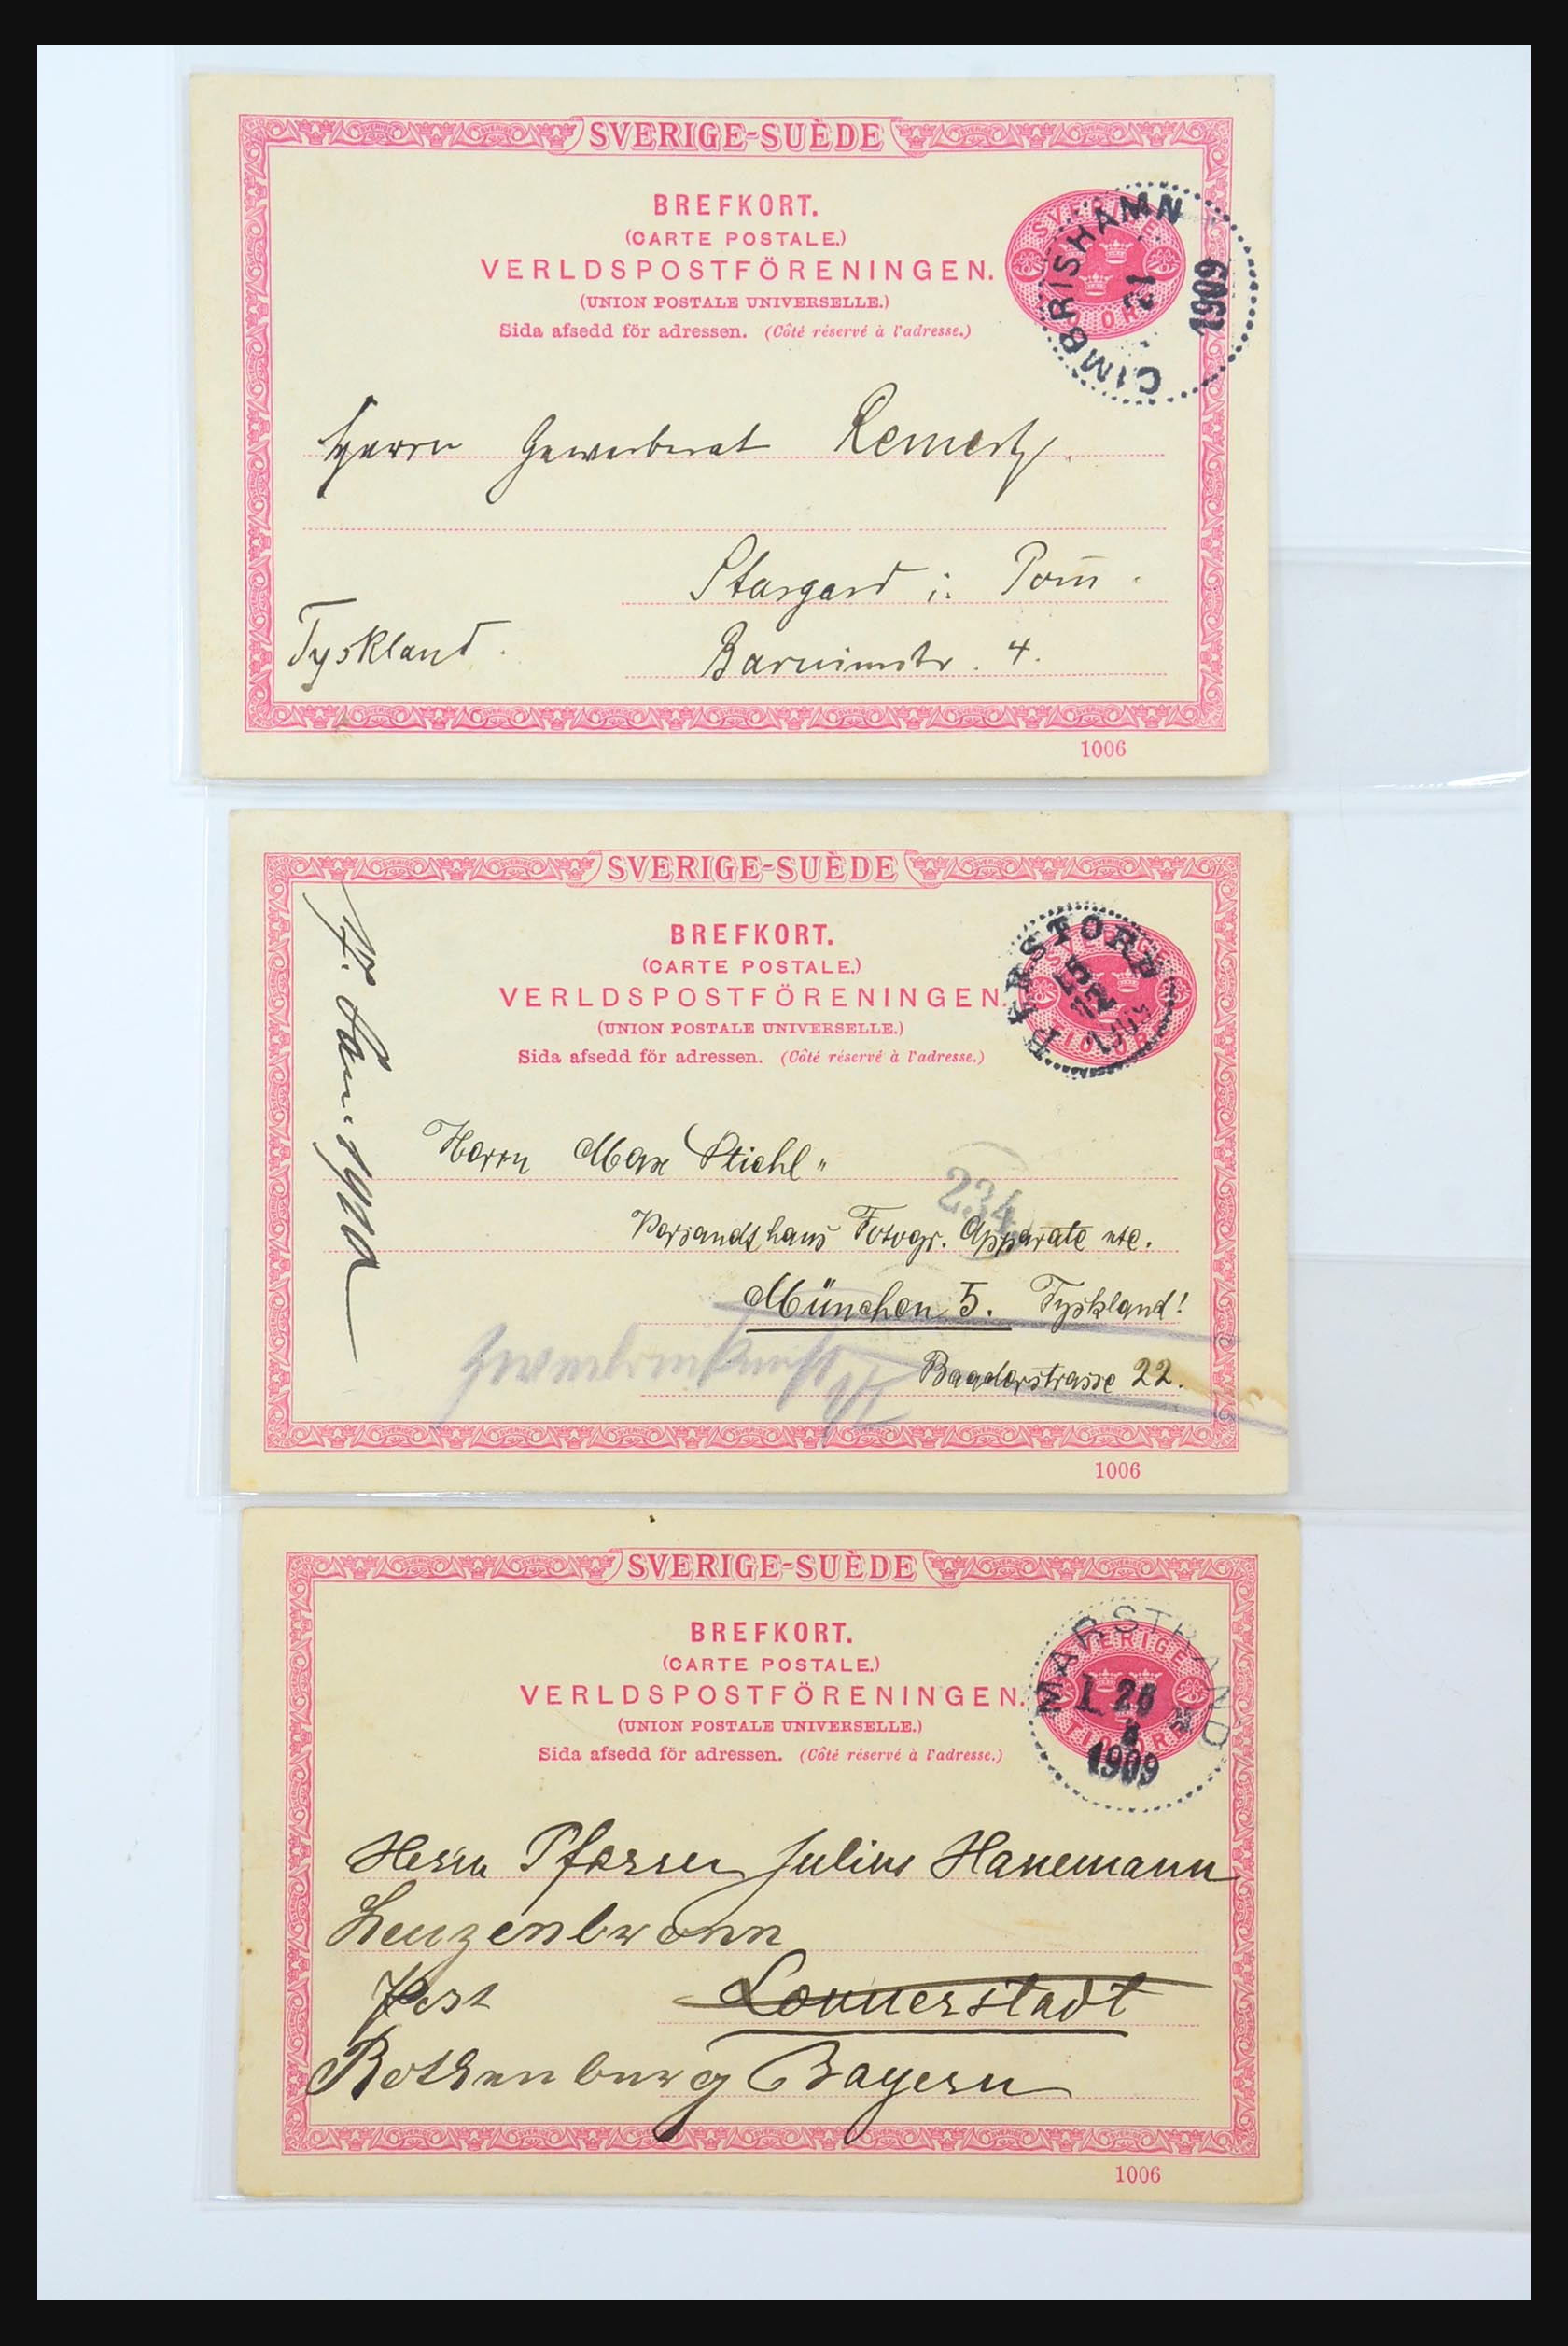 SVERIGE-SUÈDE
BREFKORT.
(CARTE POSTALE.)
VERLDSPOSTFÖRENINGEN.
(UNION POSTALE UNIVERSELLE.)
Sida afsedd för adressen. (Côté réservé à l'adresse.)
CIMBRISHAMN
1909
Herrn Gewerberat
Stargard i. Pom.
Tyskland. Barnimstr. 4.
1006
SVERIGE-SUÈDE
BREFKORT.
(CARTE POSTALE.)
VERLDSPOSTFÖRENINGEN.
(UNION POSTALE UNIVERSELLE.)
Sida afsedd för adressen. (Côté réservé à l'adresse.)
PERSTORP
15
12
Herrn Max Stiehl
234
Versandthaus Fotogr. Apparate etc.
München 5. Tyskland!
Baaderstrasse 22.
1006
SVERIGE-SUÈDE
BREFKORT.
(CARTE POSTALE.)
VERLDSPOSTFÖRENINGEN.
(UNION POSTALE UNIVERSELLE.)
Sida afsedd för adressen. (Côté réservé à l'adresse.)
SVERIGE
TIO ÖRE
MARSTRAND
26
1909
Herrn Pfarrer Julius Hanemann
Leuzenbronn
Post Lonnerstadt
Rothenburg Bayern
1006